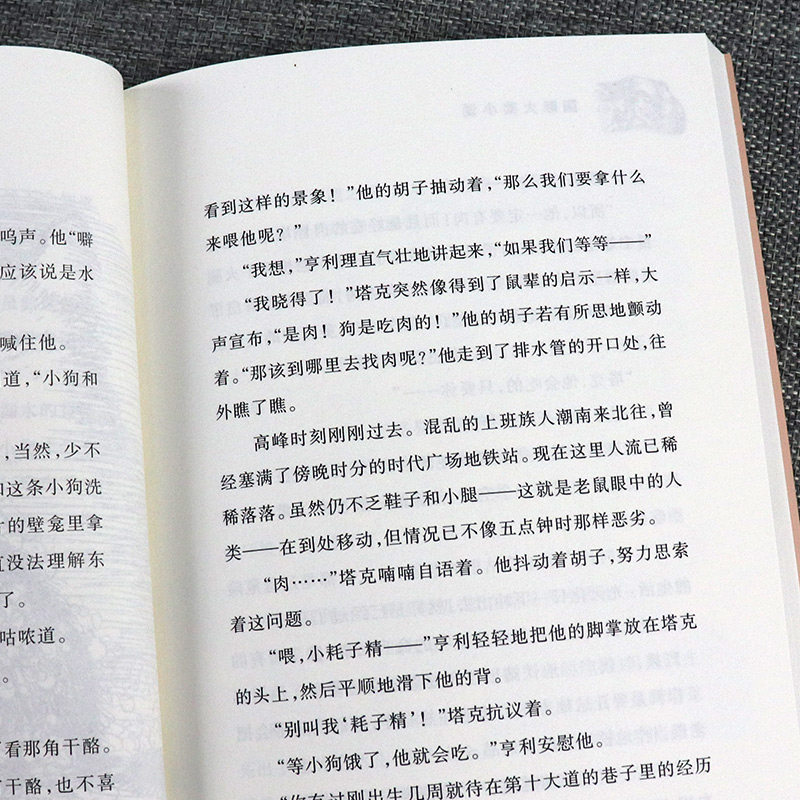 呜声。他“噼
应该说是水
喊住他。
道，“小狗和
，当然，少不
和这条小狗洗
的壁龛里拿
没法理解东
了。
咕哝道。
。
看那角干酪。
干酪，也不喜
看到这样的景象！”他的胡子抽动着，“那么我们要拿什么
来喂他呢？”
“我想，”亨利理直气壮地讲起来，“如果我们等等——”
“我晓得了！”塔克突然像得到了鼠辈的启示一样，大
声宣布，“是肉！狗是吃肉的！”他的胡子若有所思地颤动
着。“那该到哪里去找肉呢？”他走到了排水管的开口处，往
外瞧了瞧。
高峰时刻刚刚过去。混乱的上班族人潮南来北往，曾
经塞满了傍晚时分的时代广场地铁站。现在这里人流已稀
稀落落。虽然仍不乏鞋子和小腿——这就是老鼠眼中的人
类——在到处移动，但情况已不像五点钟时那样恶劣。
“肉……”塔克喃喃自语着。他抖动着胡子，努力思索
着这问题。
“喂，小耗子精——”亨利轻轻地把他的脚掌放在塔克
的头上，然后平顺地滑下他的背。
“别叫我‘耗子精’！”塔克抗议着。
“等小狗饿了，他就会吃。”亨利安慰他。
“你有过刚出生几周就待在第十大道的巷子里的经历